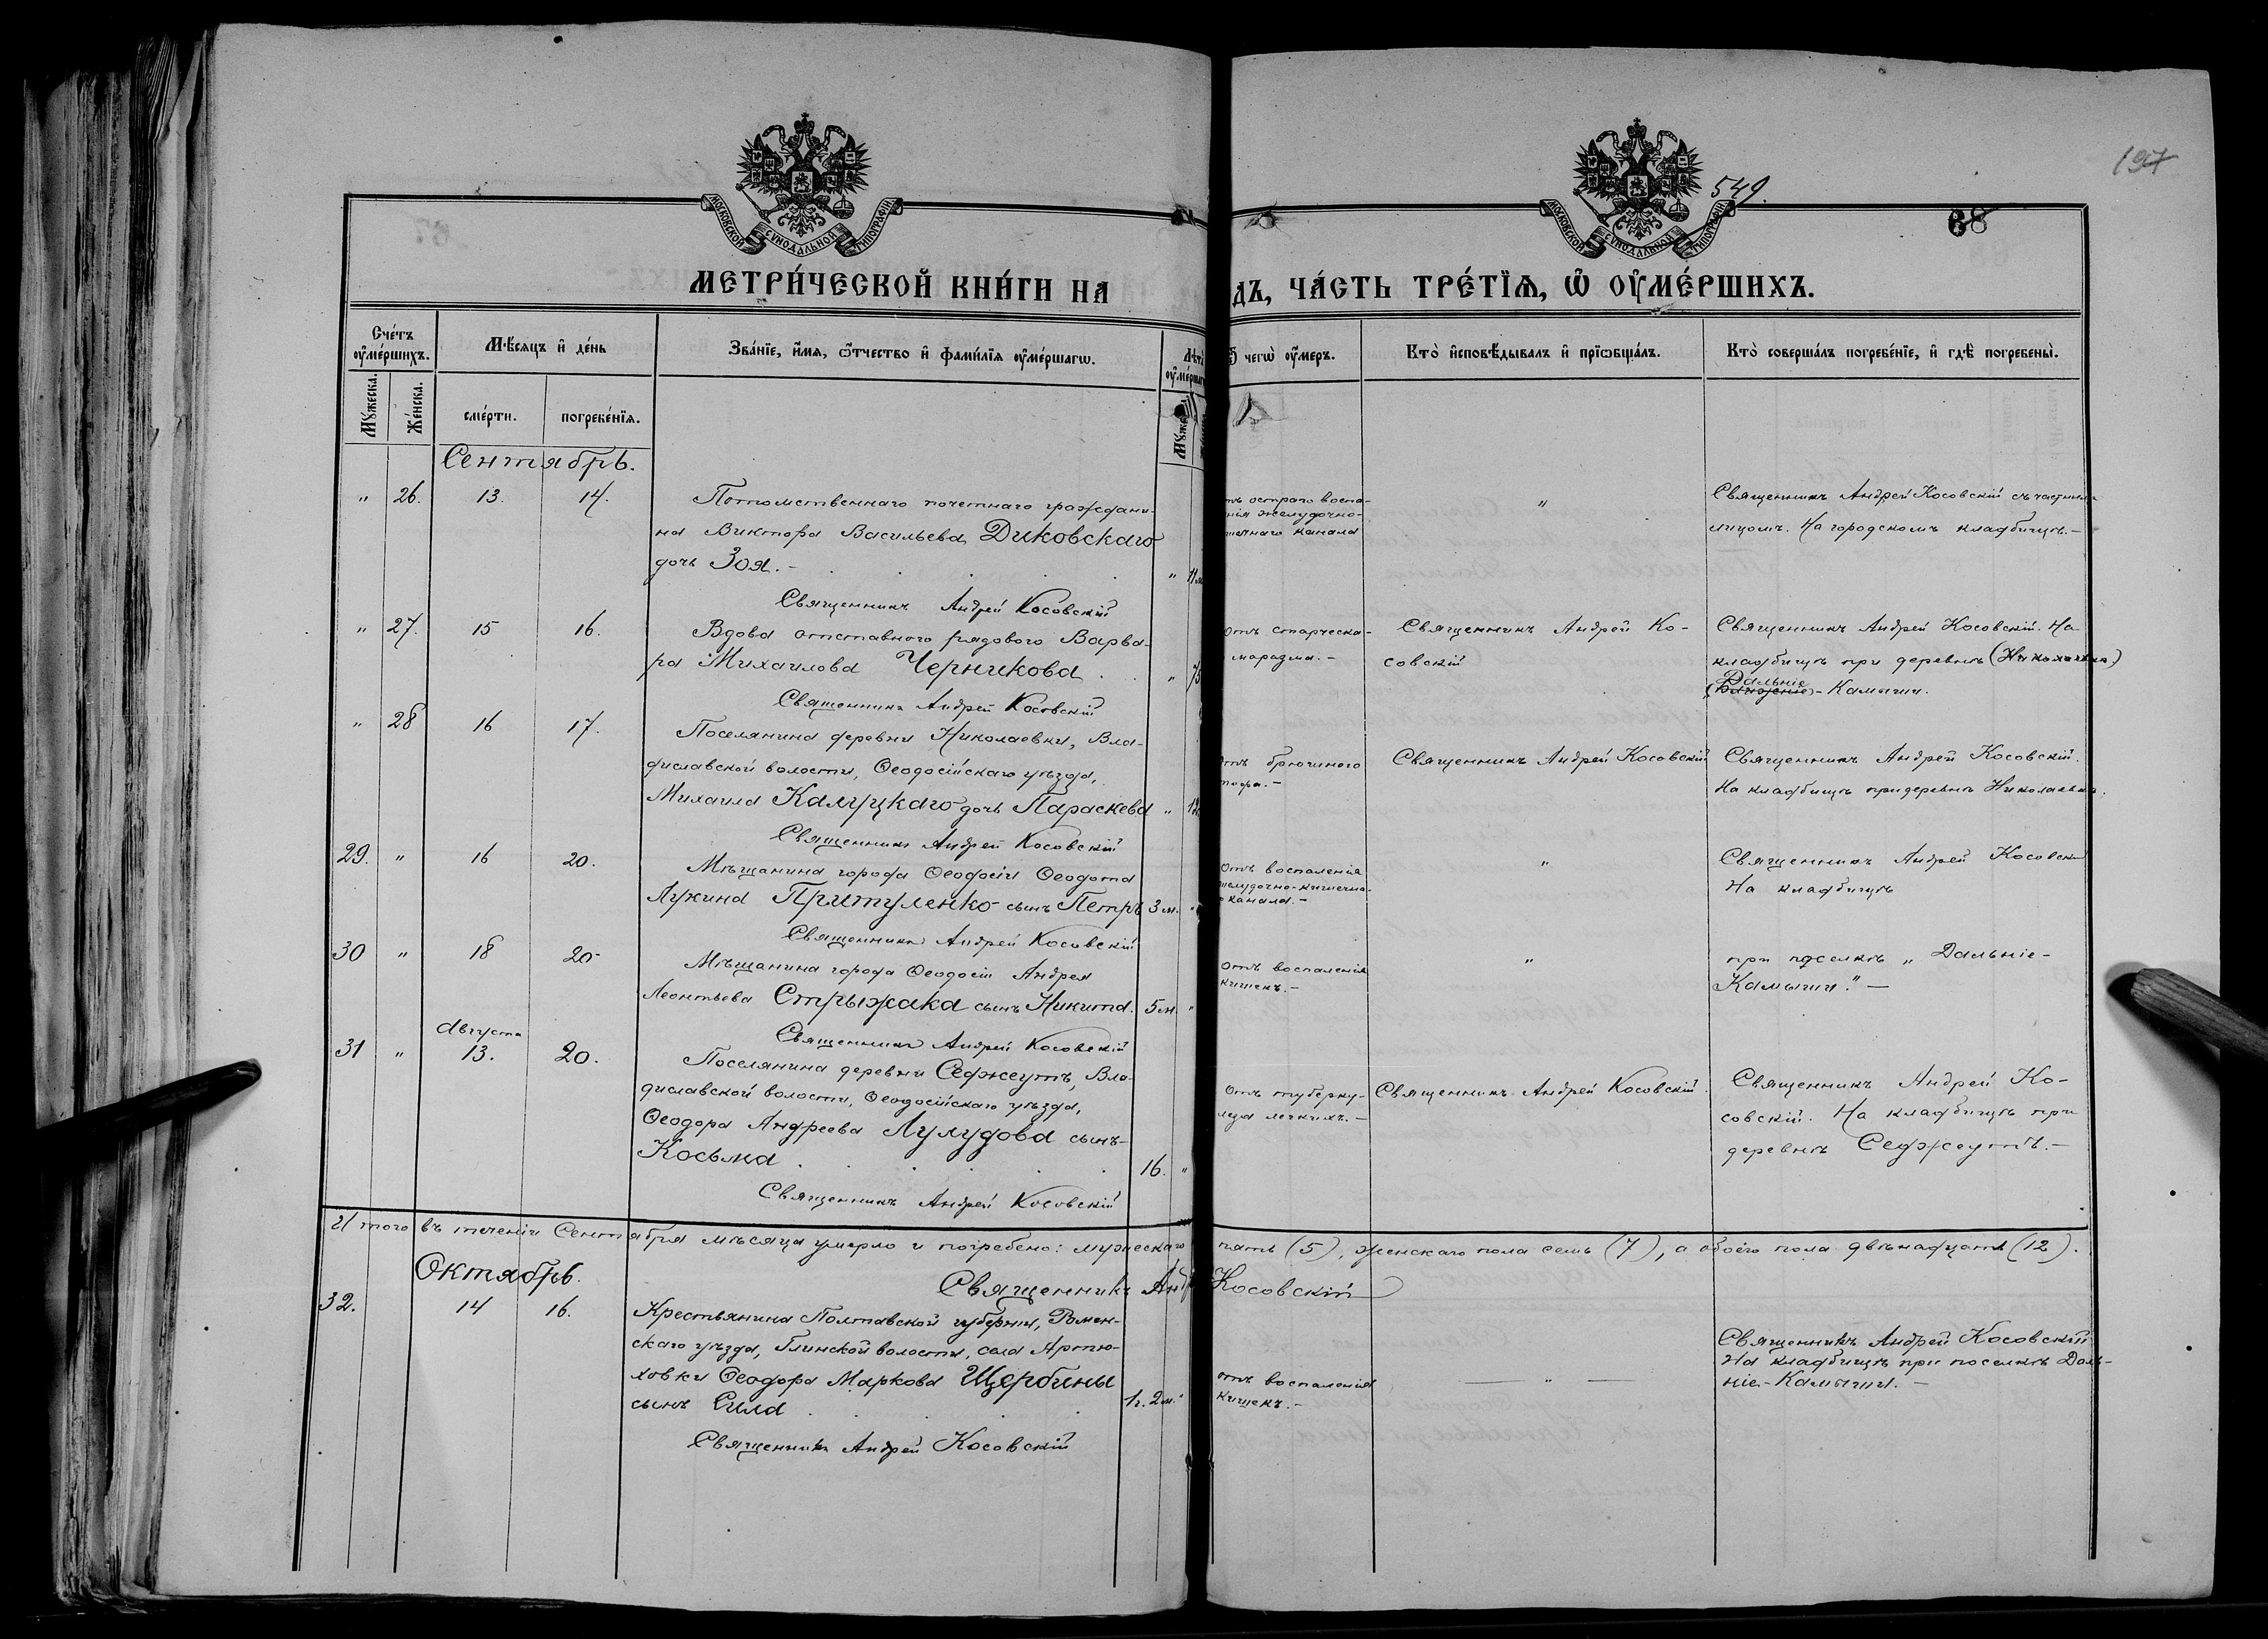 197
549.
68
МОСКОВСКОЙ СѴНОДАЛЬНОЙ ТИПОГРАФІИ
МОСКОВСКОЙ СѴНОДАЛЬНОЙ ТИПОГРАФІИ
МЕТРИ́ЧЕСКОЙ КНИ́ГИ НА
ДЪ, ЧА́СТЬ ТРЕ́ТІЯ, Ѡ ОУ҆МЕ́РШИХЪ.
Сче́тъ оу҆ме́ршихъ.
Мѣ́сяцъ и҆ де́нь
Зва́нїе, и҆́мя, ѻ҆́тчество и҆ фами́лїя оу҆ме́ршагѡ.
Лѣт
оу҆ме́ршаг
Ѿ чегѡ̀ оу҆́меръ.
Кто̀ и҆сповѣ́дывалъ и҆ прїѡбща́лъ.
Кто̀ соверша́лъ погребе́нїе, и҆ гдѣ̀ погребены̀.
Мꙋ́жеска.
Же́нска.
сме́рти.
погребе́нїя.
Мꙋже
Сентябрь.
" 26. 13. 14.
Потомственнаго почетнаго граждани-
на Виктора Васильева Диковскаго
дочь Зоя. - " 11 м
Священникъ Андрей Косовскій
тъ остраго воспа-
нія желудочно-
шечнаго канала
"
Священникъ Андрей Косовскій съ частным
лицомъ. На городскомъ кладбищѣ. -
" 27. 15 16.
Вдова отставного рядового Варва-
ра Михаилова Черникова . " 75
Священникъ Андрей Косовскій
Отъ старческа-
маразма. -
Священникъ Андрей Ко-
совскій
Священникъ Андрей Косовскій. На
кладбищѣ при деревнѣ (Николаевка)
Дальніе
(Ближніе) - Камыши.
" 28 16 17.
Поселянина деревни Николаевки, Вла-
диславской волости, Ѳеодосійскаго уѣзда,
Михаила Калуцкаго дочь Параскева " 12
Священникъ Андрей Косовскій
Отъ брюшного
тифа. -
Священникъ Андрей Косовскій
Священникъ Андрей Косовскій.
На кладбищѣ при деревнѣ Николаевкѣ.
29. " 16 20.
Мѣщанина города Ѳеодосіи Ѳеодота
Лукина Притуленко сынъ Петръ 3 м. "
Священникъ Андрей Косовскій
Отъ воспаленія
желудочно-кишечна-
канала. -
"
Священникъ Андрей Косовскі
На кладбищѣ
30 " 18 20
Мѣщанина города Ѳеодосіи Андрея
Леонтьева Стрыжака сынъ Никита. 5 м. "
Священникъ Андрей Косовскій
Отъ воспаленія
кишекъ. -
"
при поселкѣ „Дальніе-
Камыши." -
Августа
31 " 13. 20.
Поселянина деревни Седжеутъ, Вла-
диславской волости, Ѳеодосійскаго уѣзда,
Ѳеодора Андреева Лулудова сынъ-
Косьма . 16. "
Священникъ Андрей Косовскій
Отъ туберку-
леза легкихъ. -
Священникъ Андрей Косовскій.
Священникъ Андрей Ко-
совскій. На кладбищѣ при
деревнѣ Седжеутъ. -
Итого въ теченіи Сентября мѣсяца умерло и погребено: мужескаго
пять (5), женскаго пола семь (7), а обоего пола двѣнадцать (12).
Октябрь.
Священникъ Анд Косовскій
32. 14 16.
Крестьянина Полтавской губерніи, Ромен-
скаго уѣзда, Глинской волости, села Артю-
ховки Ѳеодора Маркова Щербины
сынъ Сила . 1 г. 2 м. "
Священникъ Андрей Косовскій
отъ воспаленія
кишекъ. -
— " —
Священникъ Андрей Косовскій
На кладбищѣ при поселкѣ Даль-
ніе-Камыши. -